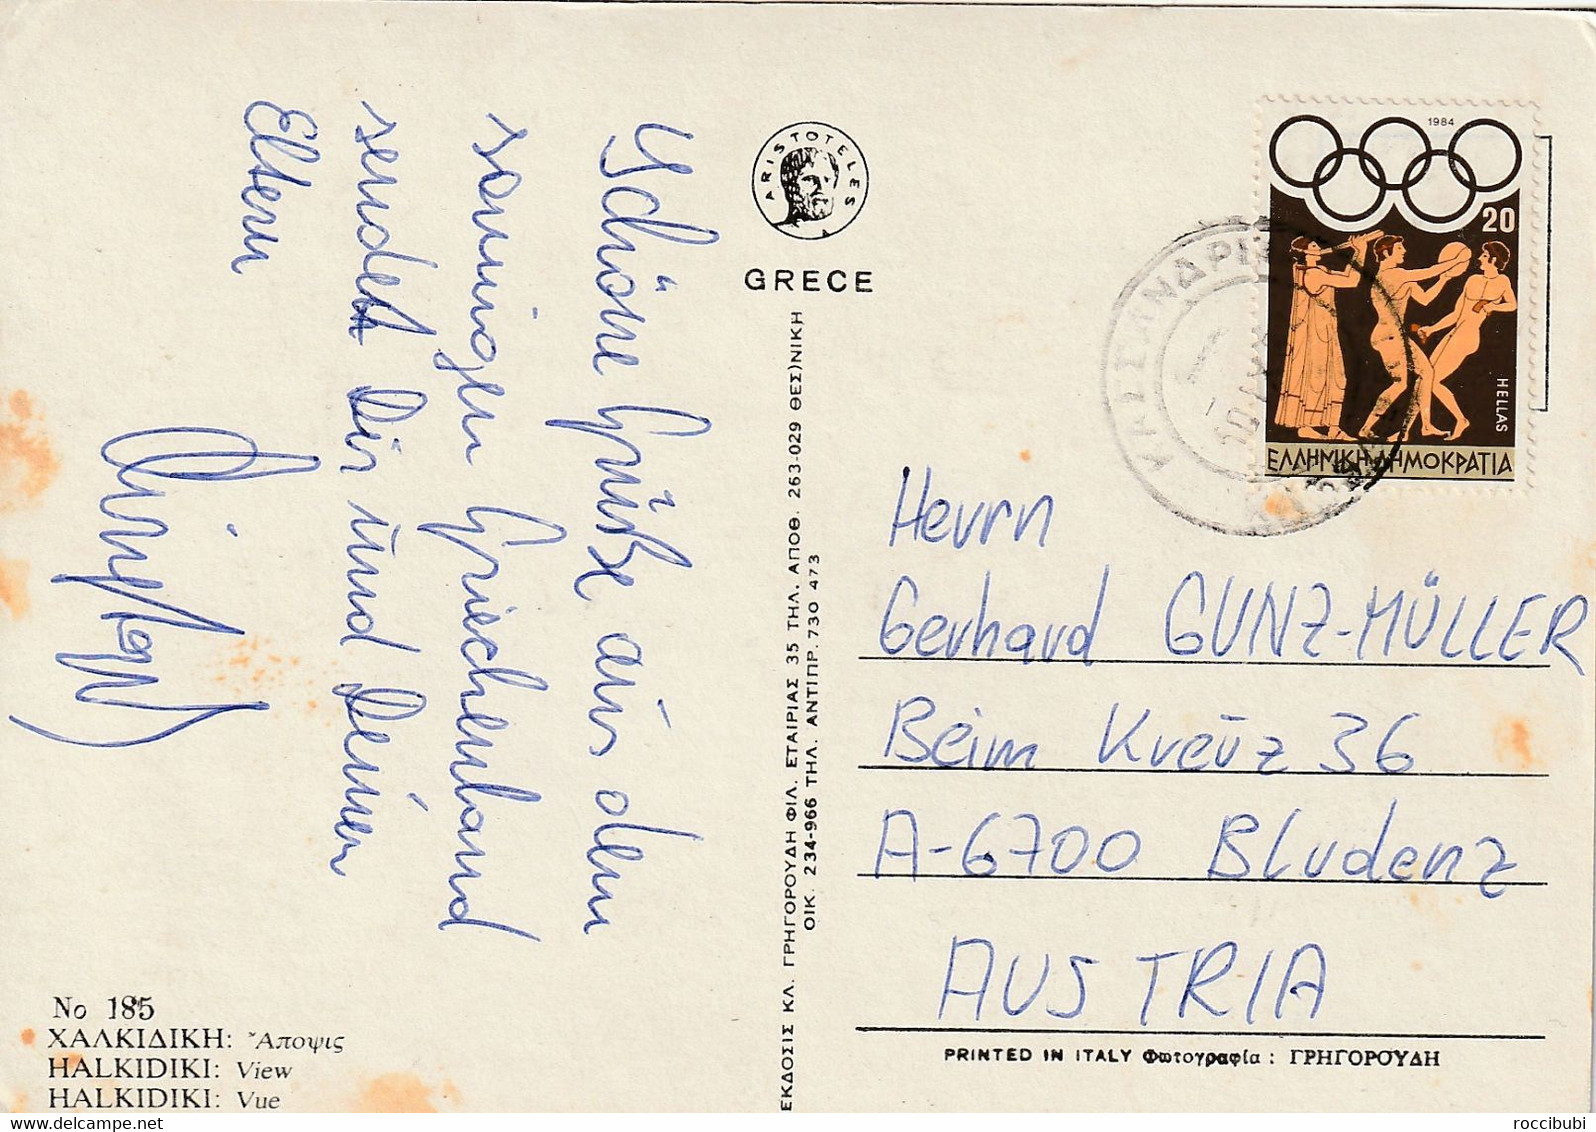 Schöne Grüße aus dem
sonnigen Griechenland
sendet Dir und Deinen
Eltern
ARISTOTELES
GRECE
ΕΚΔΟΣΙΣ ΚΛ. ΓΡΗΓΟΡΟΥΔΗ ΦΙΛ. ΕΤΑΙΡΙΑΣ 35 ΤΗΛ. ΑΠΟΘ. 263-029 ΘΕΣ)ΝΙΚΗ
ΟΙΚ. 234-966 ΤΗΛ. ΑΝΤΙΠΡ. 730 473
1984
20
HELLAS
ΕΛΛΗΝΙΚΗ ΔΗΜΟΚΡΑΤΙΑ
Herrn
Gerhard GUNZ-MÜLLER
Beim Kreuz 36
A-6700 Bludenz
AUSTRIA
No 185
ΧΑΛΚΙΔΙΚΗ: Ἄποψις
HALKIDIKI: View
HALKIDIKI: Vue
PRINTED IN ITALY Φωτογραφία : ΓΡΗΓΟΡΟΥΔΗ
roccibubi